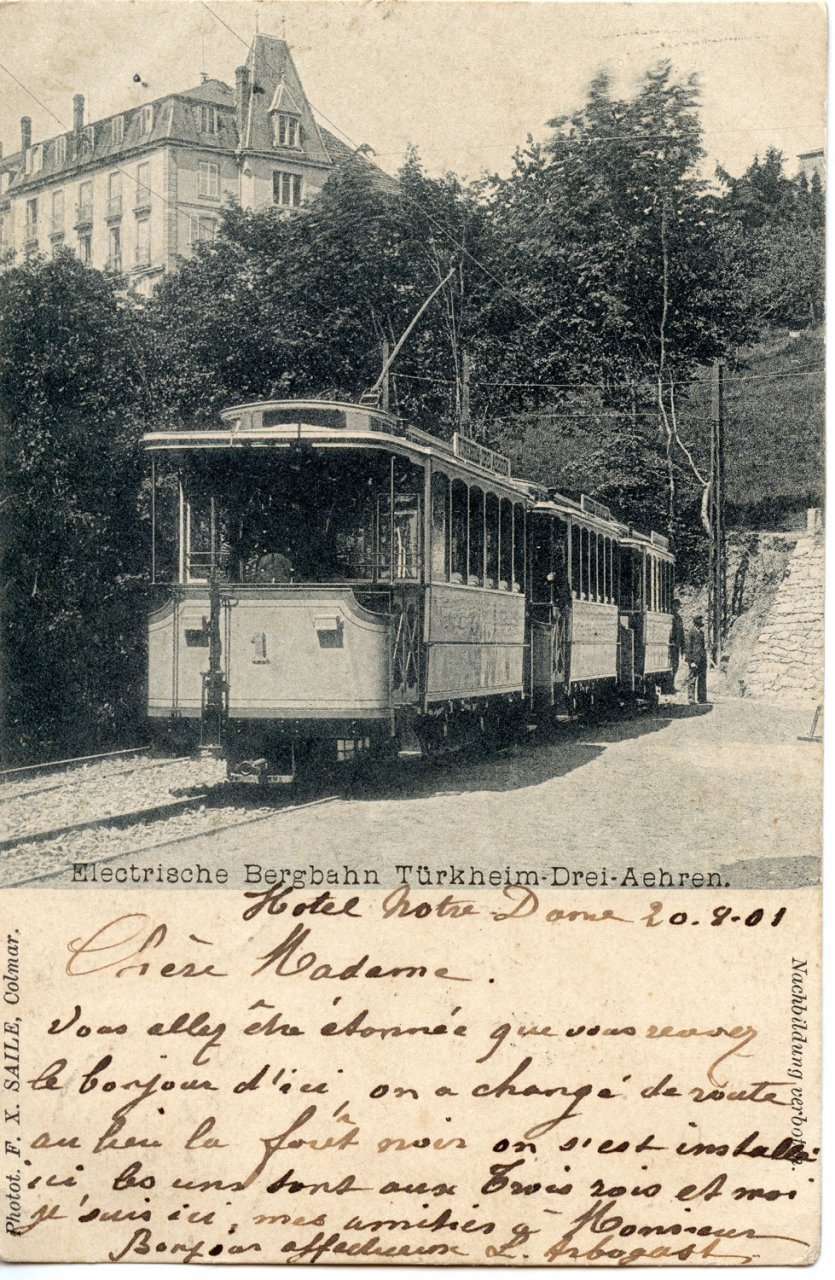 1
Electrische Bergbahn Türkheim-Drei-Aehren.
Hotel Notre Dame 20.8.01
Chère Madame.
Vous allez être étonnée que vous recevez
le bonjour d'ici, on a changé de route
au lieu la forêt noir on s'est installé
ici les uns sont aux Trois rois et moi
je suis ici, mes amitiés à Monsieur
Bonjour affectueux L. Arbogast
Photot. F. X. SAILE, Colmar.
Nachbildung verboten.